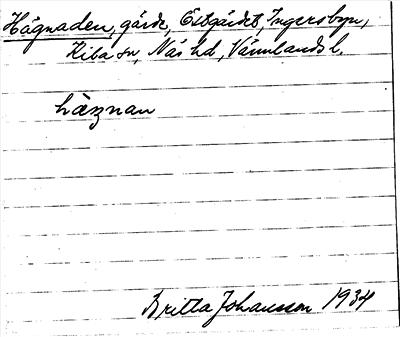 Hägnaden, gärde, Östgärdet, Ingersbyn,
Kila sn, Näs hd, Värmlands l.
hæ̀ŋnan
Britta Johansson 1934